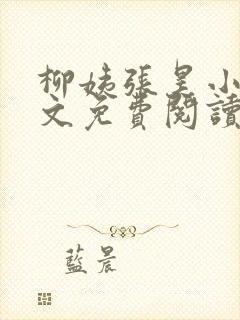 柳姨張昊小
文免費閱讀
藍晨